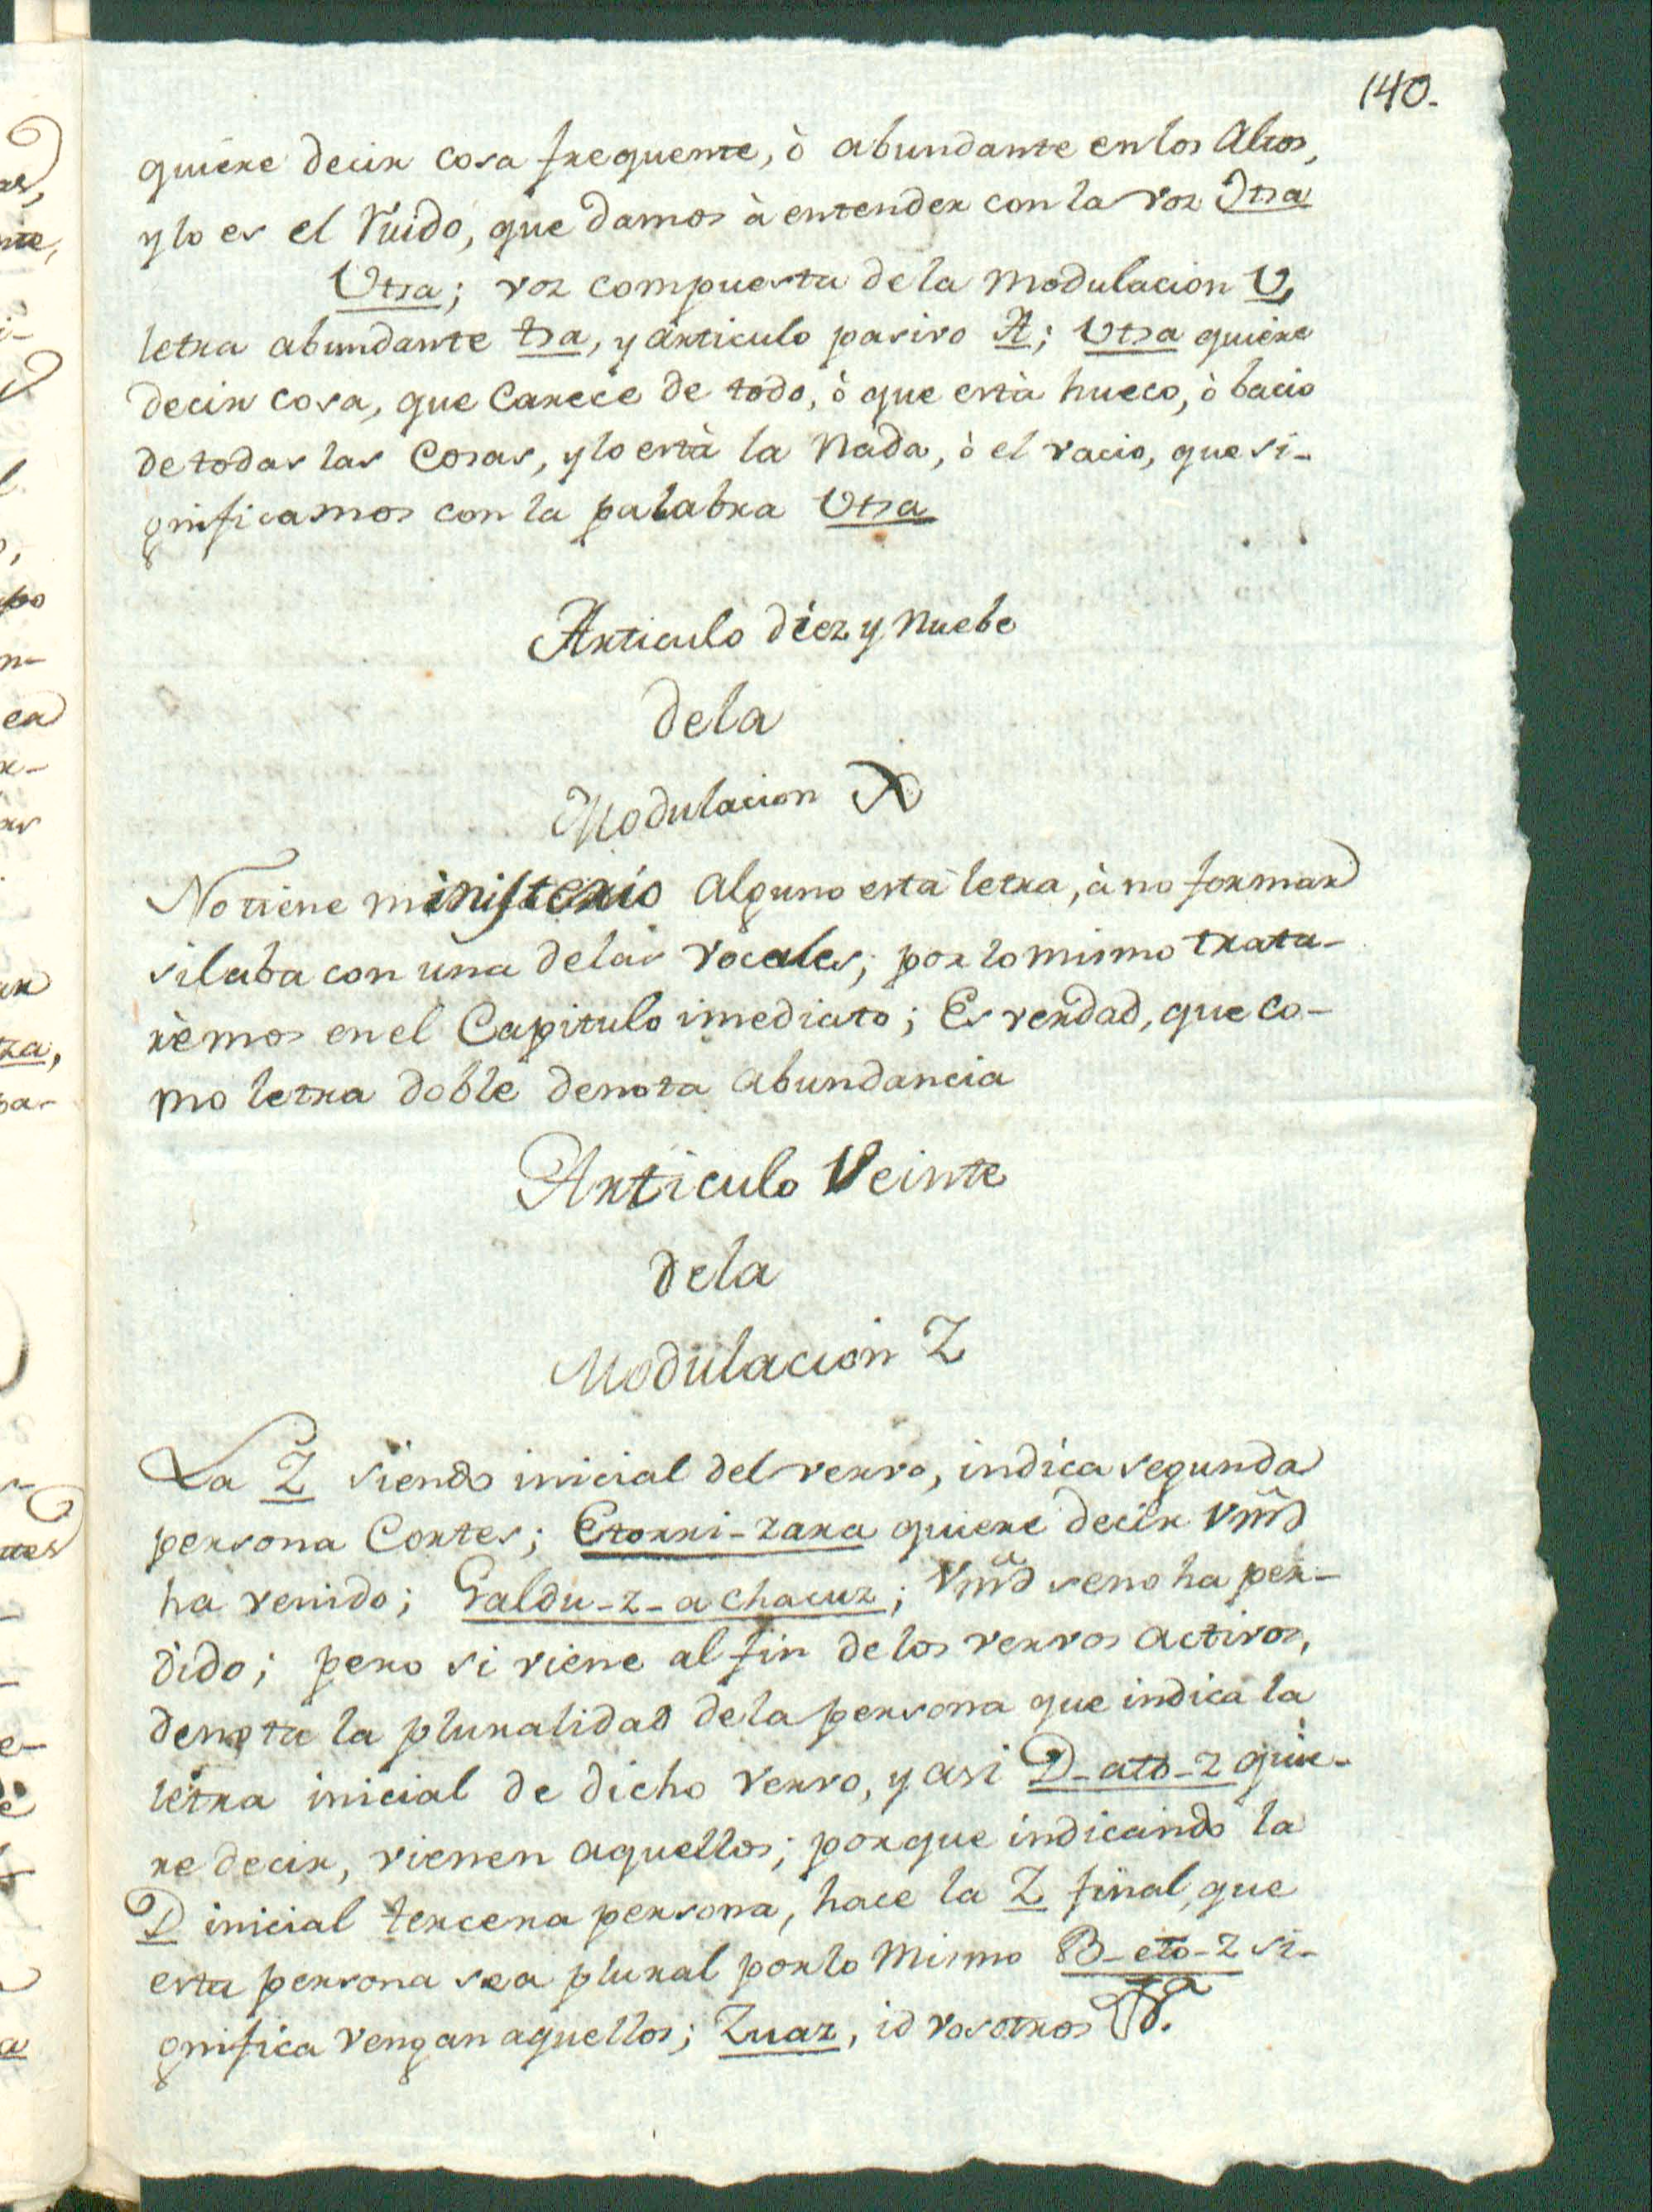 140.
quiere decir cosa frequente, ò abundante en los Altos,
y lo es el Ruido, que damos à entender con la voz Otsa
Utsa; voz compuesta de la modulacion U,
letra abundante tsa, y articulo pasivo A; Utsa quiere
decir cosa, que Carece de todo, ò que està hueco, ò bacio
de todas las Cosas, y lo està la Nada, ò el vacio, que si-
gnificamos con la palabra Utsa
Articulo diez y Nuebe
de la
Modulacion X
No tiene ministerio alguno esta letra, à no formar
silaba con una de las vocales; por lo mismo trata-
rèmos en el Capitulo imediato; Es verdad, que co-
mo letra doble denota abundancia
Articulo Veinte
de la
Modulacion Z
La Z siendo inicial del vervo, indica segunda
persona Cortes; Etorri-zara quiere decir Vmd
ha venido; Galdu-z-a chacuz; Vmd se no ha per-
dido; pero si viene al fin de los vervos activos,
denota la pluralidad de la persona que indica la
letra inicial de dicho vervo, y asi D-ato-z quie-
re decir, vienen aquellos; porque indicando la
D inicial tercera persona, hace la Z final, que
esta persona sea plural por lo mismo B-eto-z si-
gnifica vengan aquellos; Zuaz, id vosotros